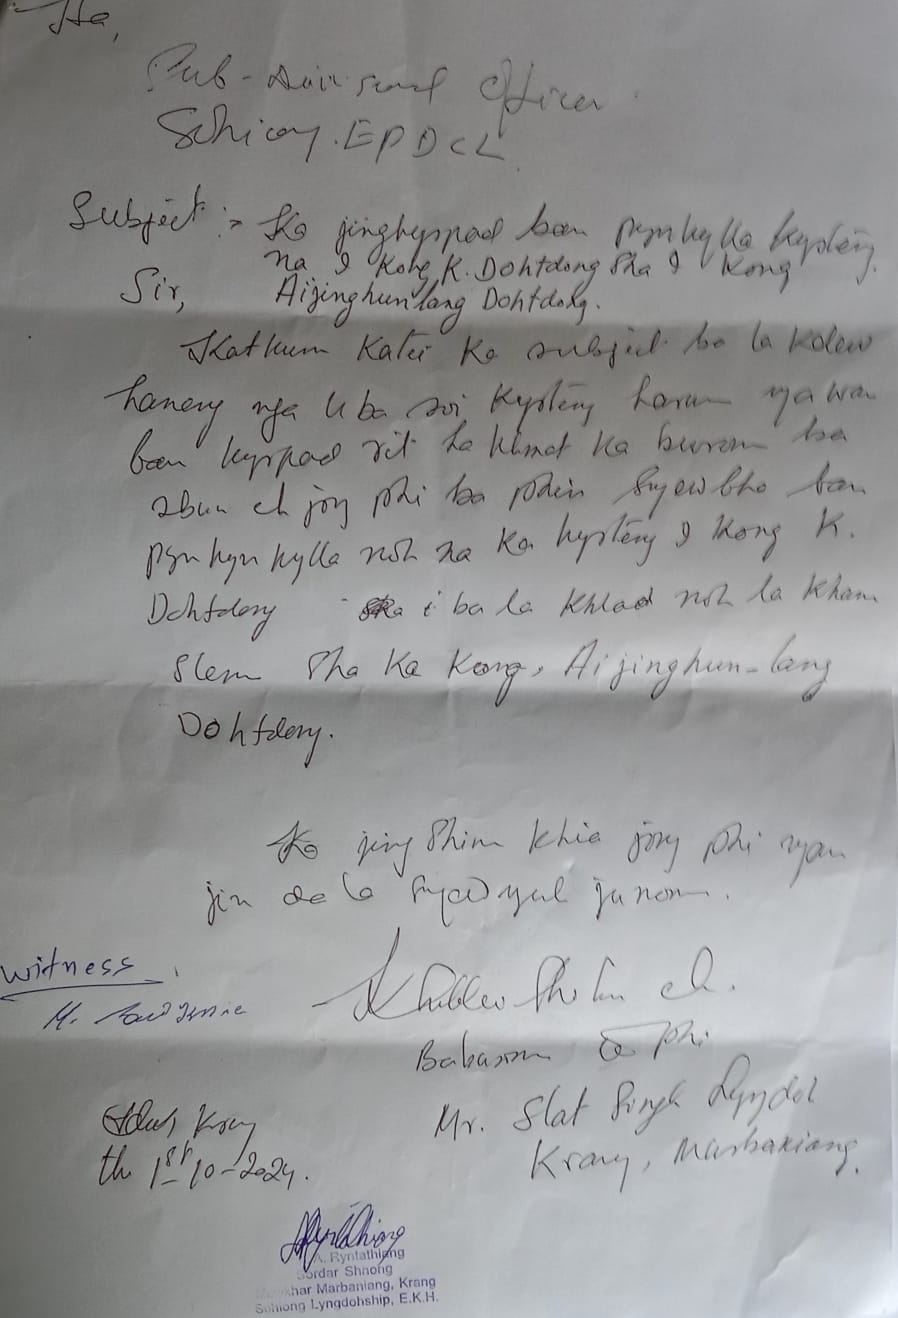 Ha,
Sub-Divisional Officer
Sohiong. EPDCL
Subject :- Ka jingkyrpad ban pynkylla kyrteng
na I Kong K. Dohtdong sha I Kong
Sir, Aijinghunlang Dohtdong.
Katkum Katei Ka subject ba la kdew
haneng nga U ba soi kyrteng harum nga wan
ban kyrpad rit ha khmat ka burom ba
abun eh jong phi ba phin sngewbha ban
pynkylla noh na ka kyrteng I Kong K.
Dohtdong i ba la khlad noh la kham
slem sha Ka Kong, Aijinghun-lang
Dohtdong.
Ka jingshim khia jong phi ngan
jin da la sngewnguh junom.
Khublei Shibun eh.
Witness
Babarom phi
Mr. Slat Singh Lyngdoh
Krang, Marbaniang.
Krang
th 1st-10-2024.
A. Ryntathiang
Sordar Shnong
Marbaniang, Krang
Sohiong Lyngdohship, E.K.H.